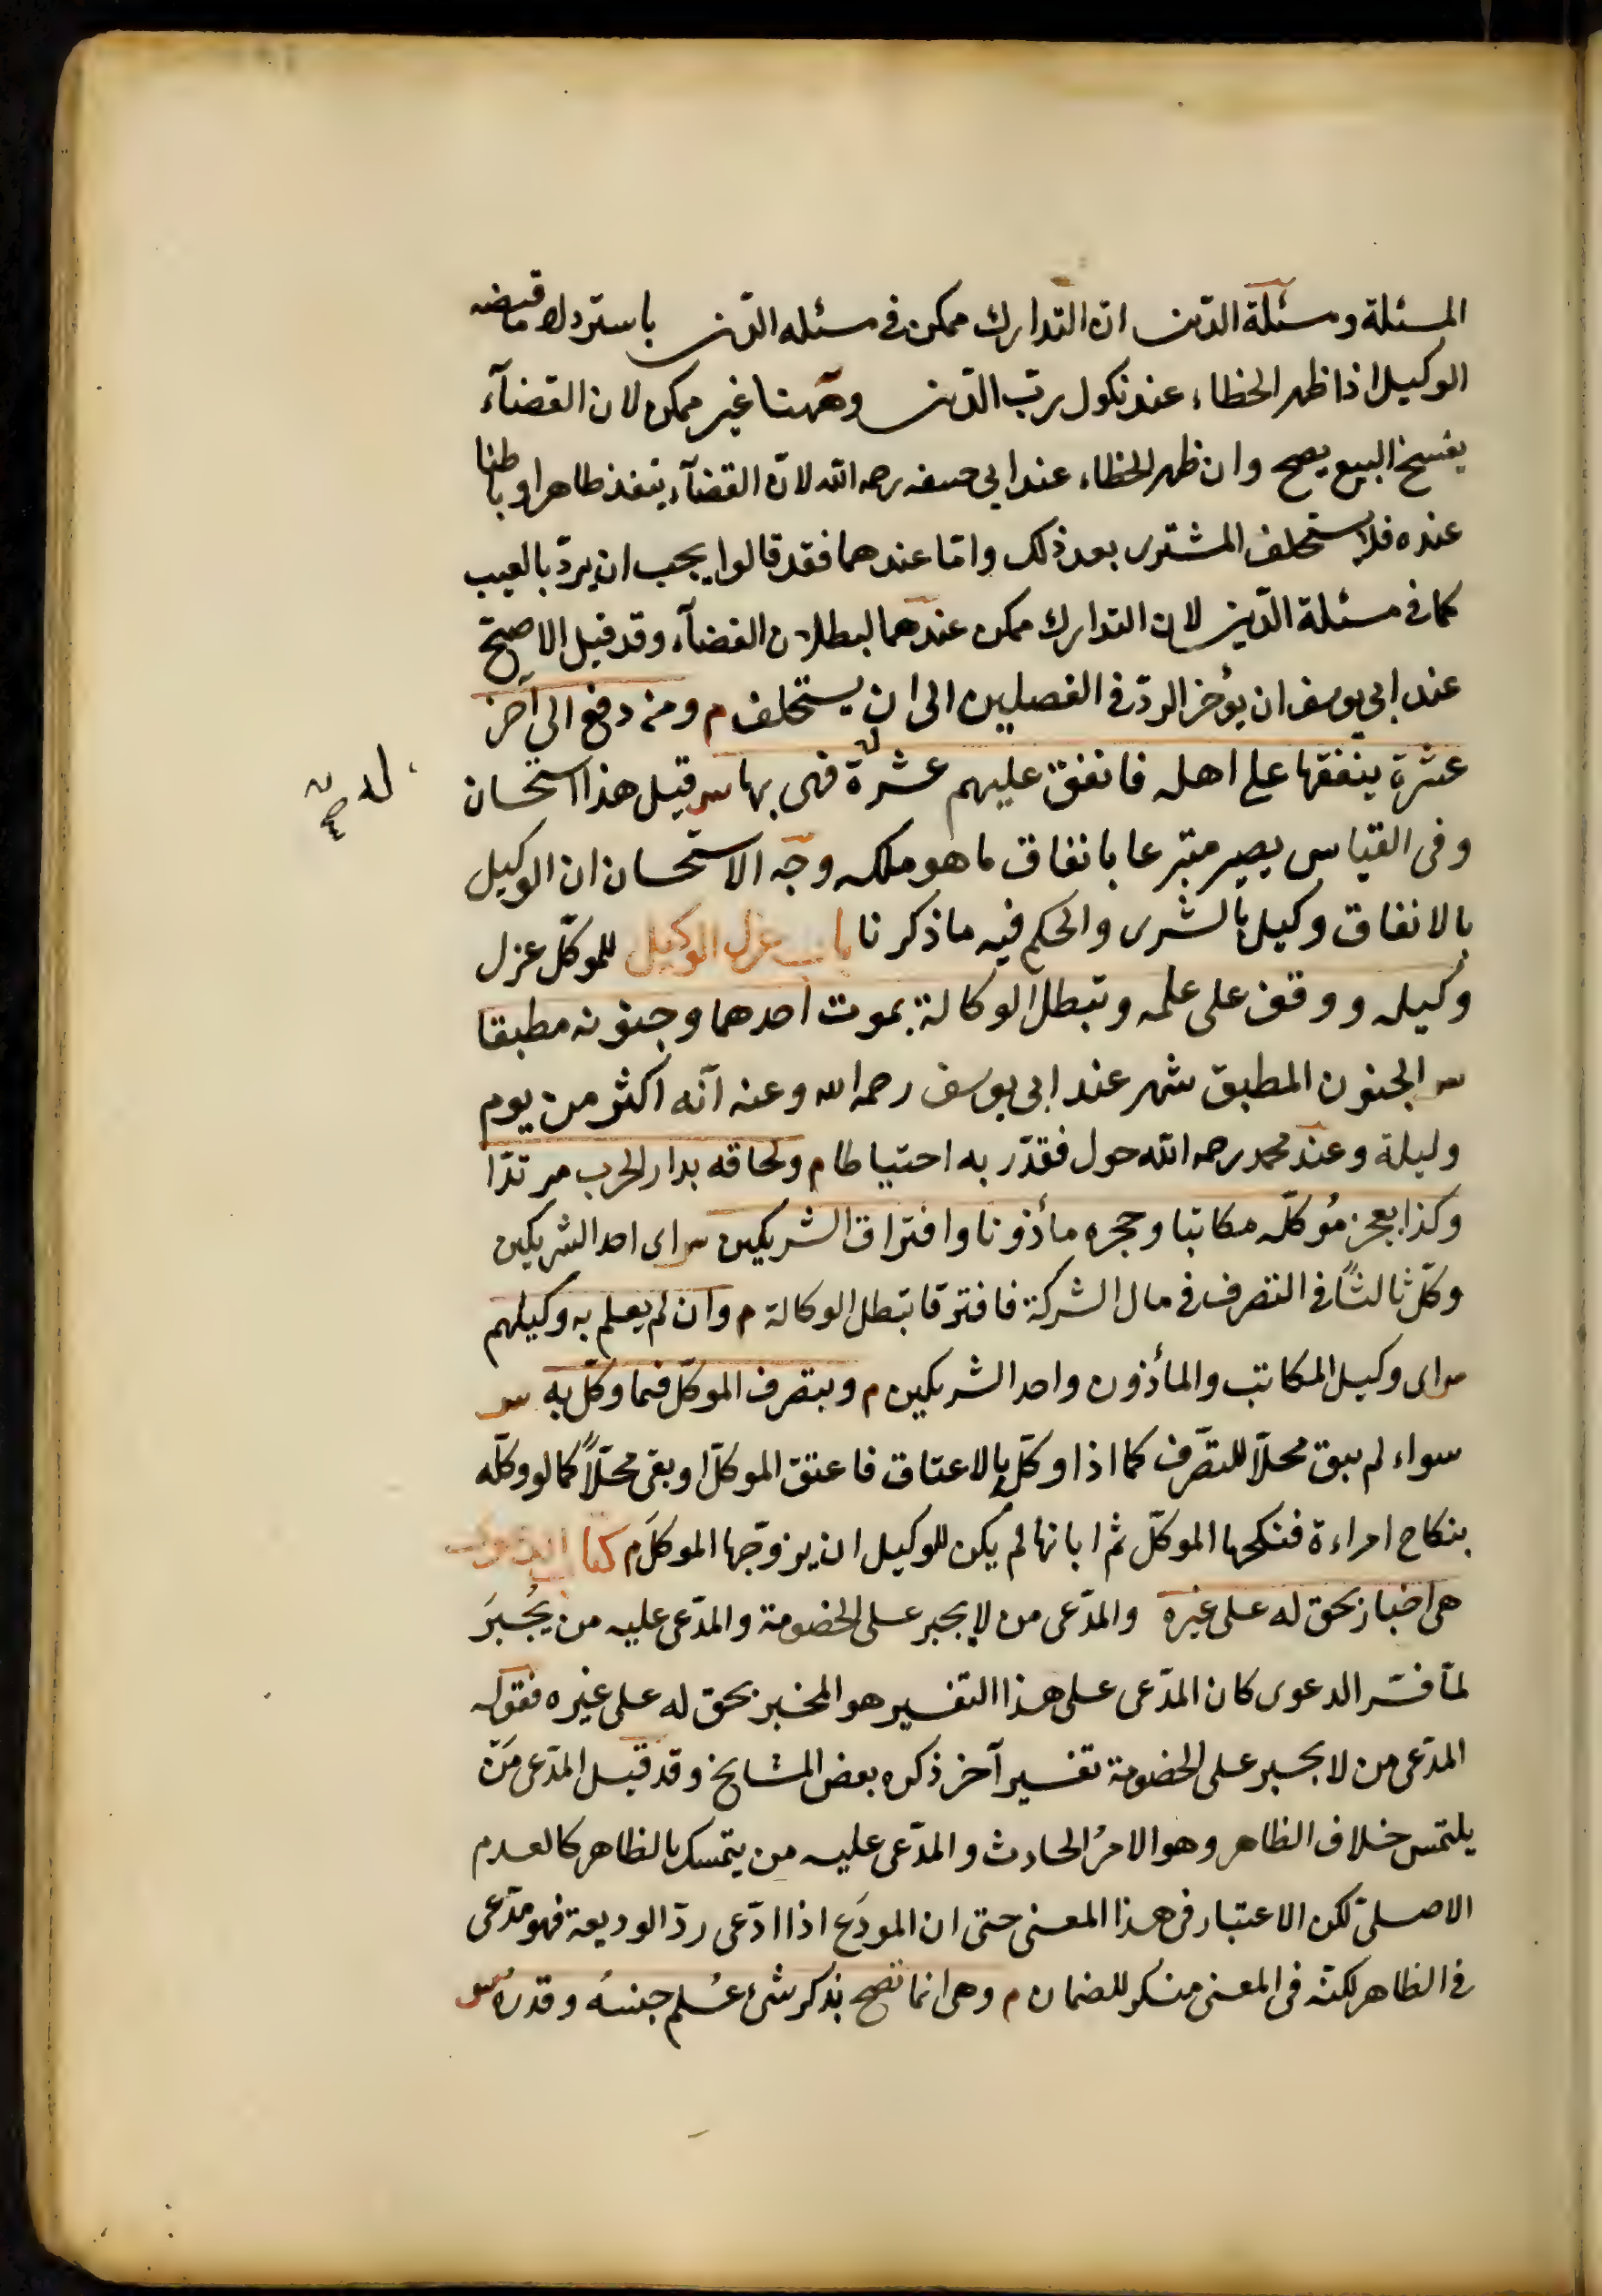 المسئلة ومسئلة الدّين انّ التدارك ممكن فى مسئله الدّين باسترداد ما قبضه
الوكيل اذا ظهر الخطاء عند نكول ربّ الدّين وههنا غير ممكن لان القضآء
بفسخ البيع يصح وان ظهر الخطاء عند ابى حنيفه رحمه الله لانّ القضآء ينفذ ظاهرا وباطنا
عنده فلا يستحلف المشترى بعد ذلك وامّا عندهما فقد قالوا يجب ان يردّ بالعيب
كما فى مسئلة الدّين لان التدارك ممكن عندهما لبطلان القضآء وقد قيل الاصحّ
عند ابى يوسف ان يؤخر الردّ فى الفصلين الى ان يستحلف م ومن دفع الى آخر
عشرة ينفقها على اهله فانفق عليهم عشرة له فهى بها س قيل هذا استحسان
له صح
وفى القياس يصير متبرعا بانفاق ما هو ملكه وجه الاستحسان ان الوكيل
بالانفاق وكيل بالشرى والحكم فيه ما ذكرنا باب عزل الوكيل للموكّل عزل
وكيله ووقف على علمه وتبطل الوكالة بموت احدهما وجنونه مطبقا
س الجنون المطبق شهر عند ابى يوسف رحمه الله وعنه انّه اكثر من يوم
وليلة وعند محمد رحمه الله حول فقدّر به احتياطا م ولحاقه بدار الحرب مرتدّا
وكذا بعجز مُوكلّه مكاتبا وحجره مأذونا وافتراق الشريكين س اى احد الشريكين
وكلّ ثالثًا فى التصرف فى مال الشركة فافترقا تبطل الوكالة م وان لم يعلم به وكيلهم
س اى وكيل المكاتب والمأذون واحد الشريكين م وبتصرف الموكّل فيما وكّل به س
سواء لم يبق محلّا للتصّرف كما اذا وكّل بالاعتاق فاعتق الموكلّ او بقى محلّاً كما لو وكلّه
بنكاح امراءة فنكحها الموكّل ثم ابانها لم يكن للوكيل ان يزوّجها الموكلَ م كتاب الدعوى
هى اخبار بحق له على غيره والمدّعى من لا يجبر على الخصومة والمدّعى عليه من يُجبرَ
لمّا فسّر الدعوى كان المدّعى على هذا التفسير هو المخبر بحق له على غيره فقوله
المدّعى من لا يجبر على الخصومة تفسير آخر ذكره بعض المشايخ وقد قيل المدّعى مَنْ
يلتمس خلاف الظاهر وهو الامرُ الحادث والمدّعى عليه من يتمسك بالظاهر كالعدم
الاصلىّ لكن الاعتبار فى هذا المعنى حتى ان المودَع اذا ادّعى ردّ الوديعة فهو مدّعى
فى الظاهر لكنّه فى المعنى منكر للضمان م وهى انما تصح بذكر شئ عُلم جنسُه وقدرُه س